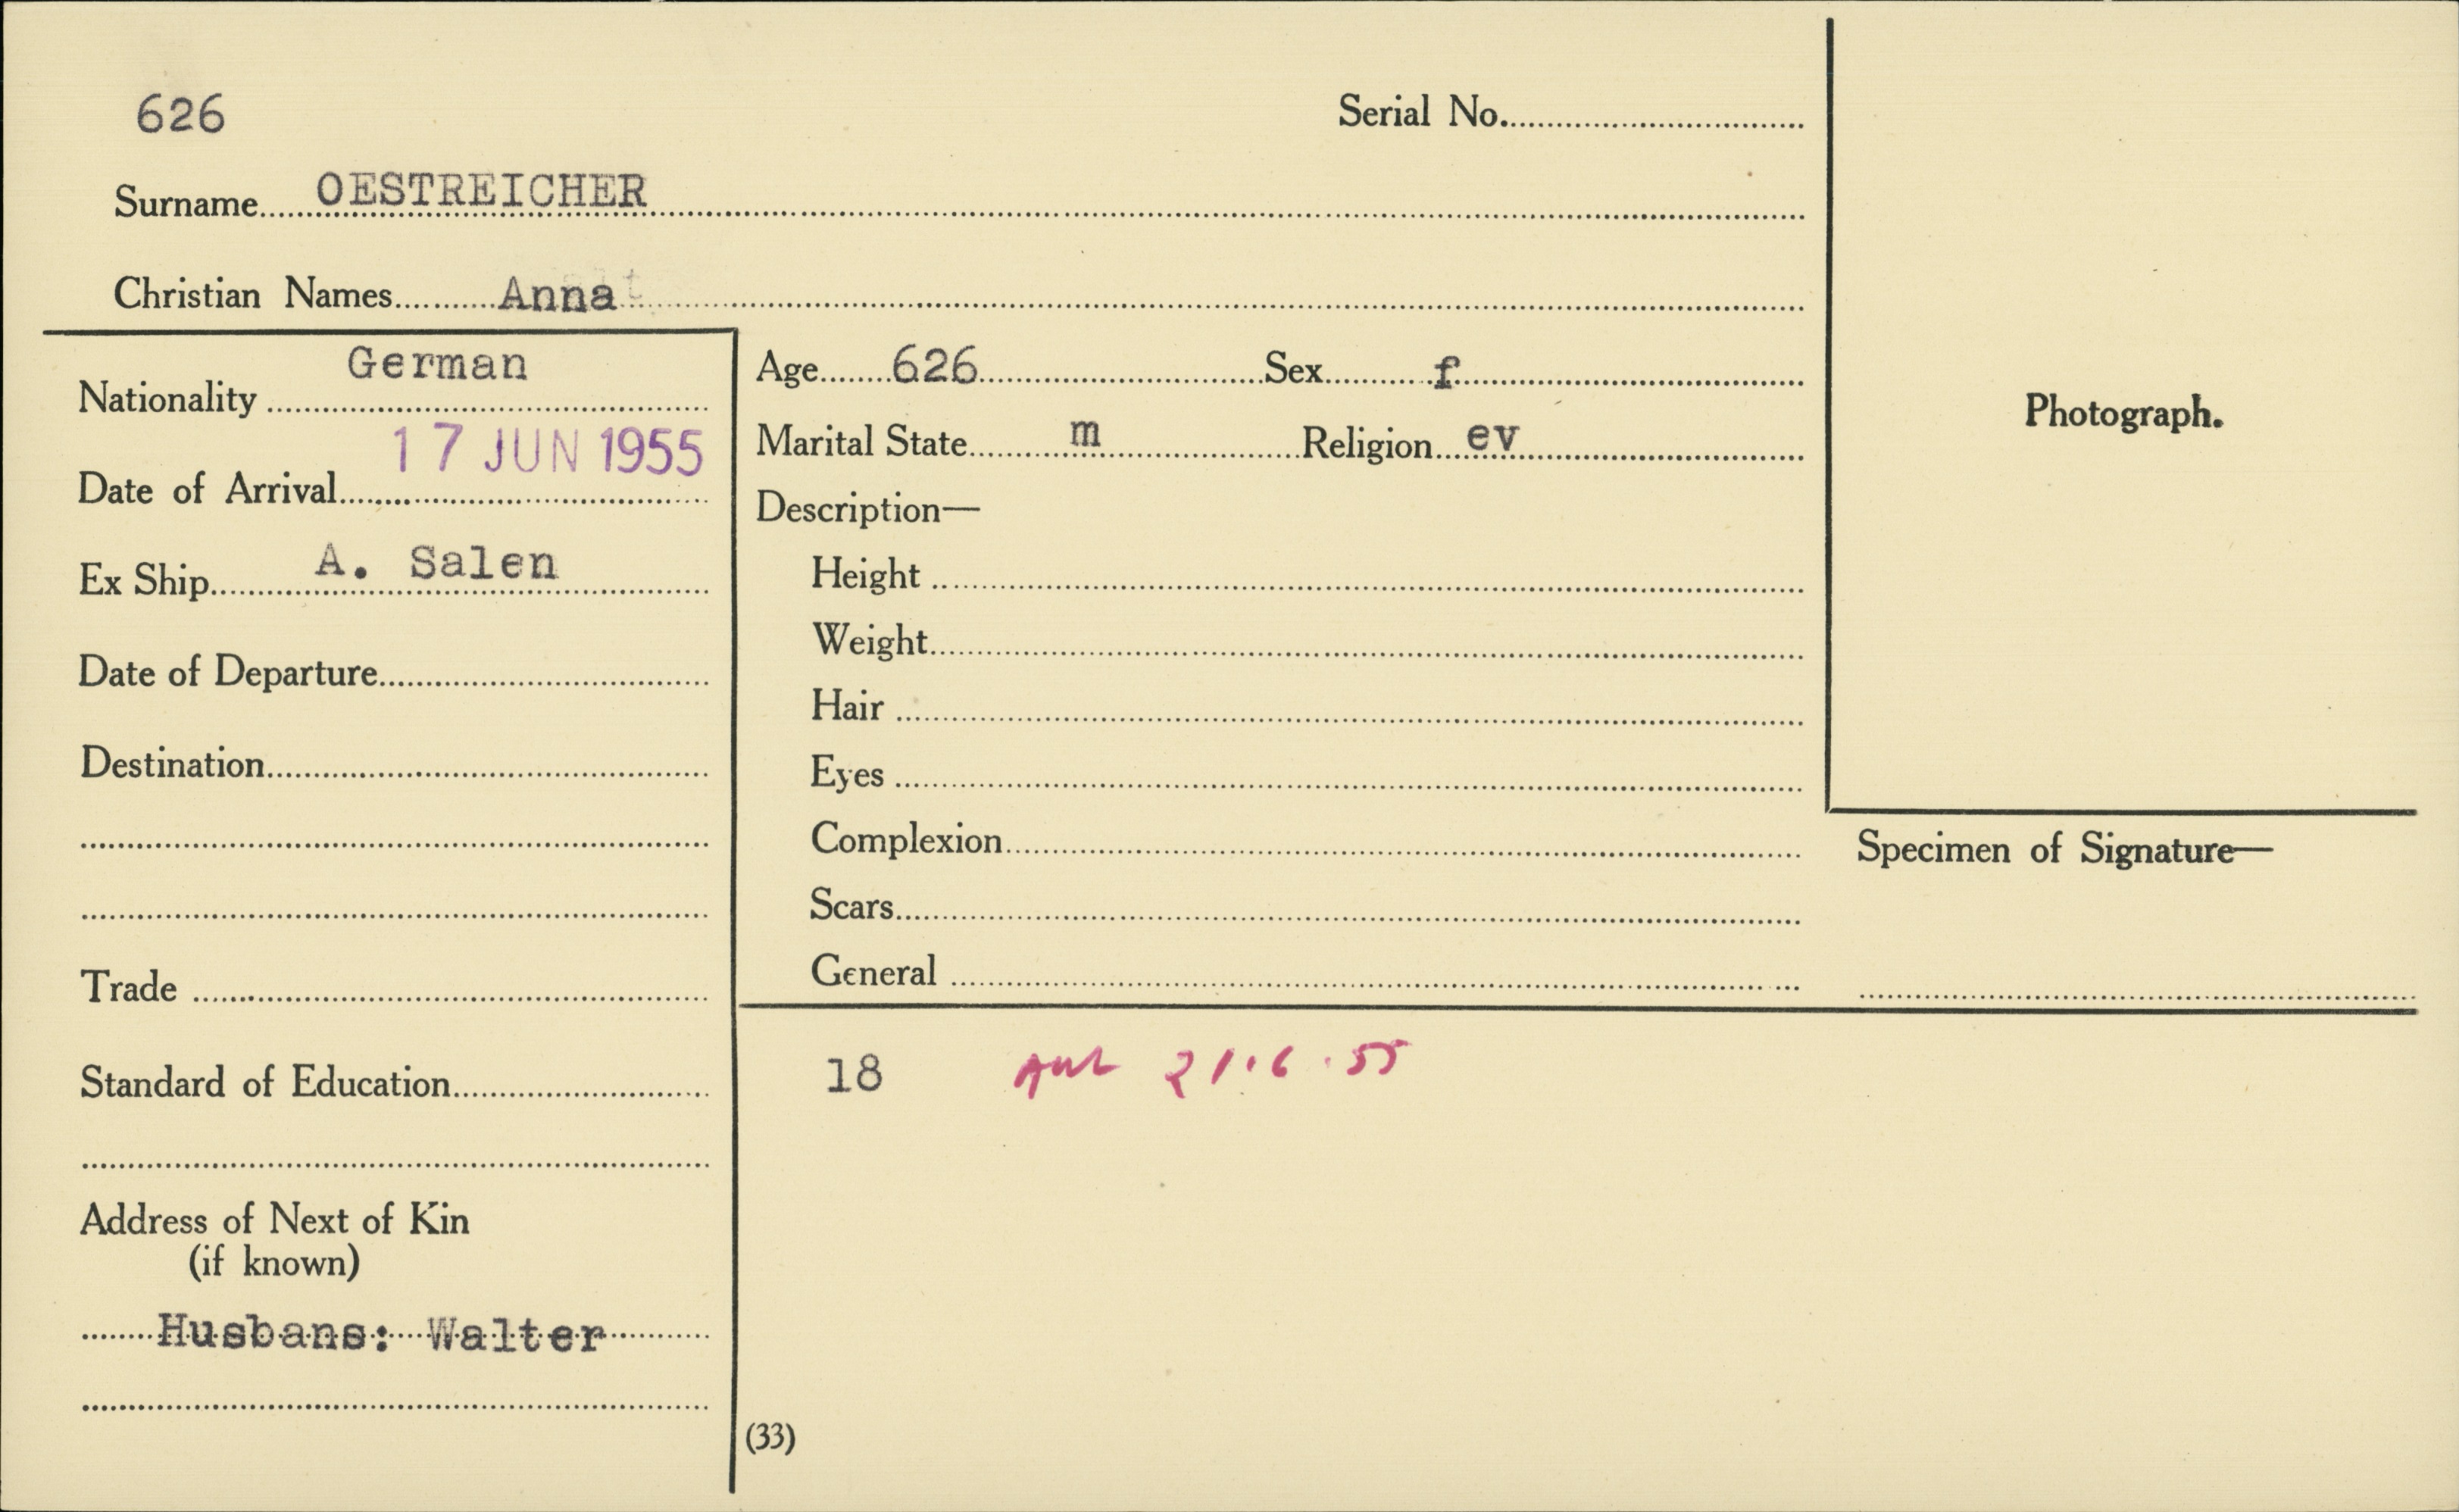 626
Serial No.
Surname OESTREICHER
Christian Names Anna
Nationality German
Date of Arrival 17 JUN 1955
Ex Ship A. Salen
Date of Departure
Destination
Trade
Standard of Education
Address of Next of Kin
(if known)
Husbans: Walter
Age 626 Sex f
Marital State m Religion ev
Description—
Height
Weight
Hair
Eyes
Complexion
Scars
General
Photograph.
Specimen of Signature—
18 21.6.55
(33)